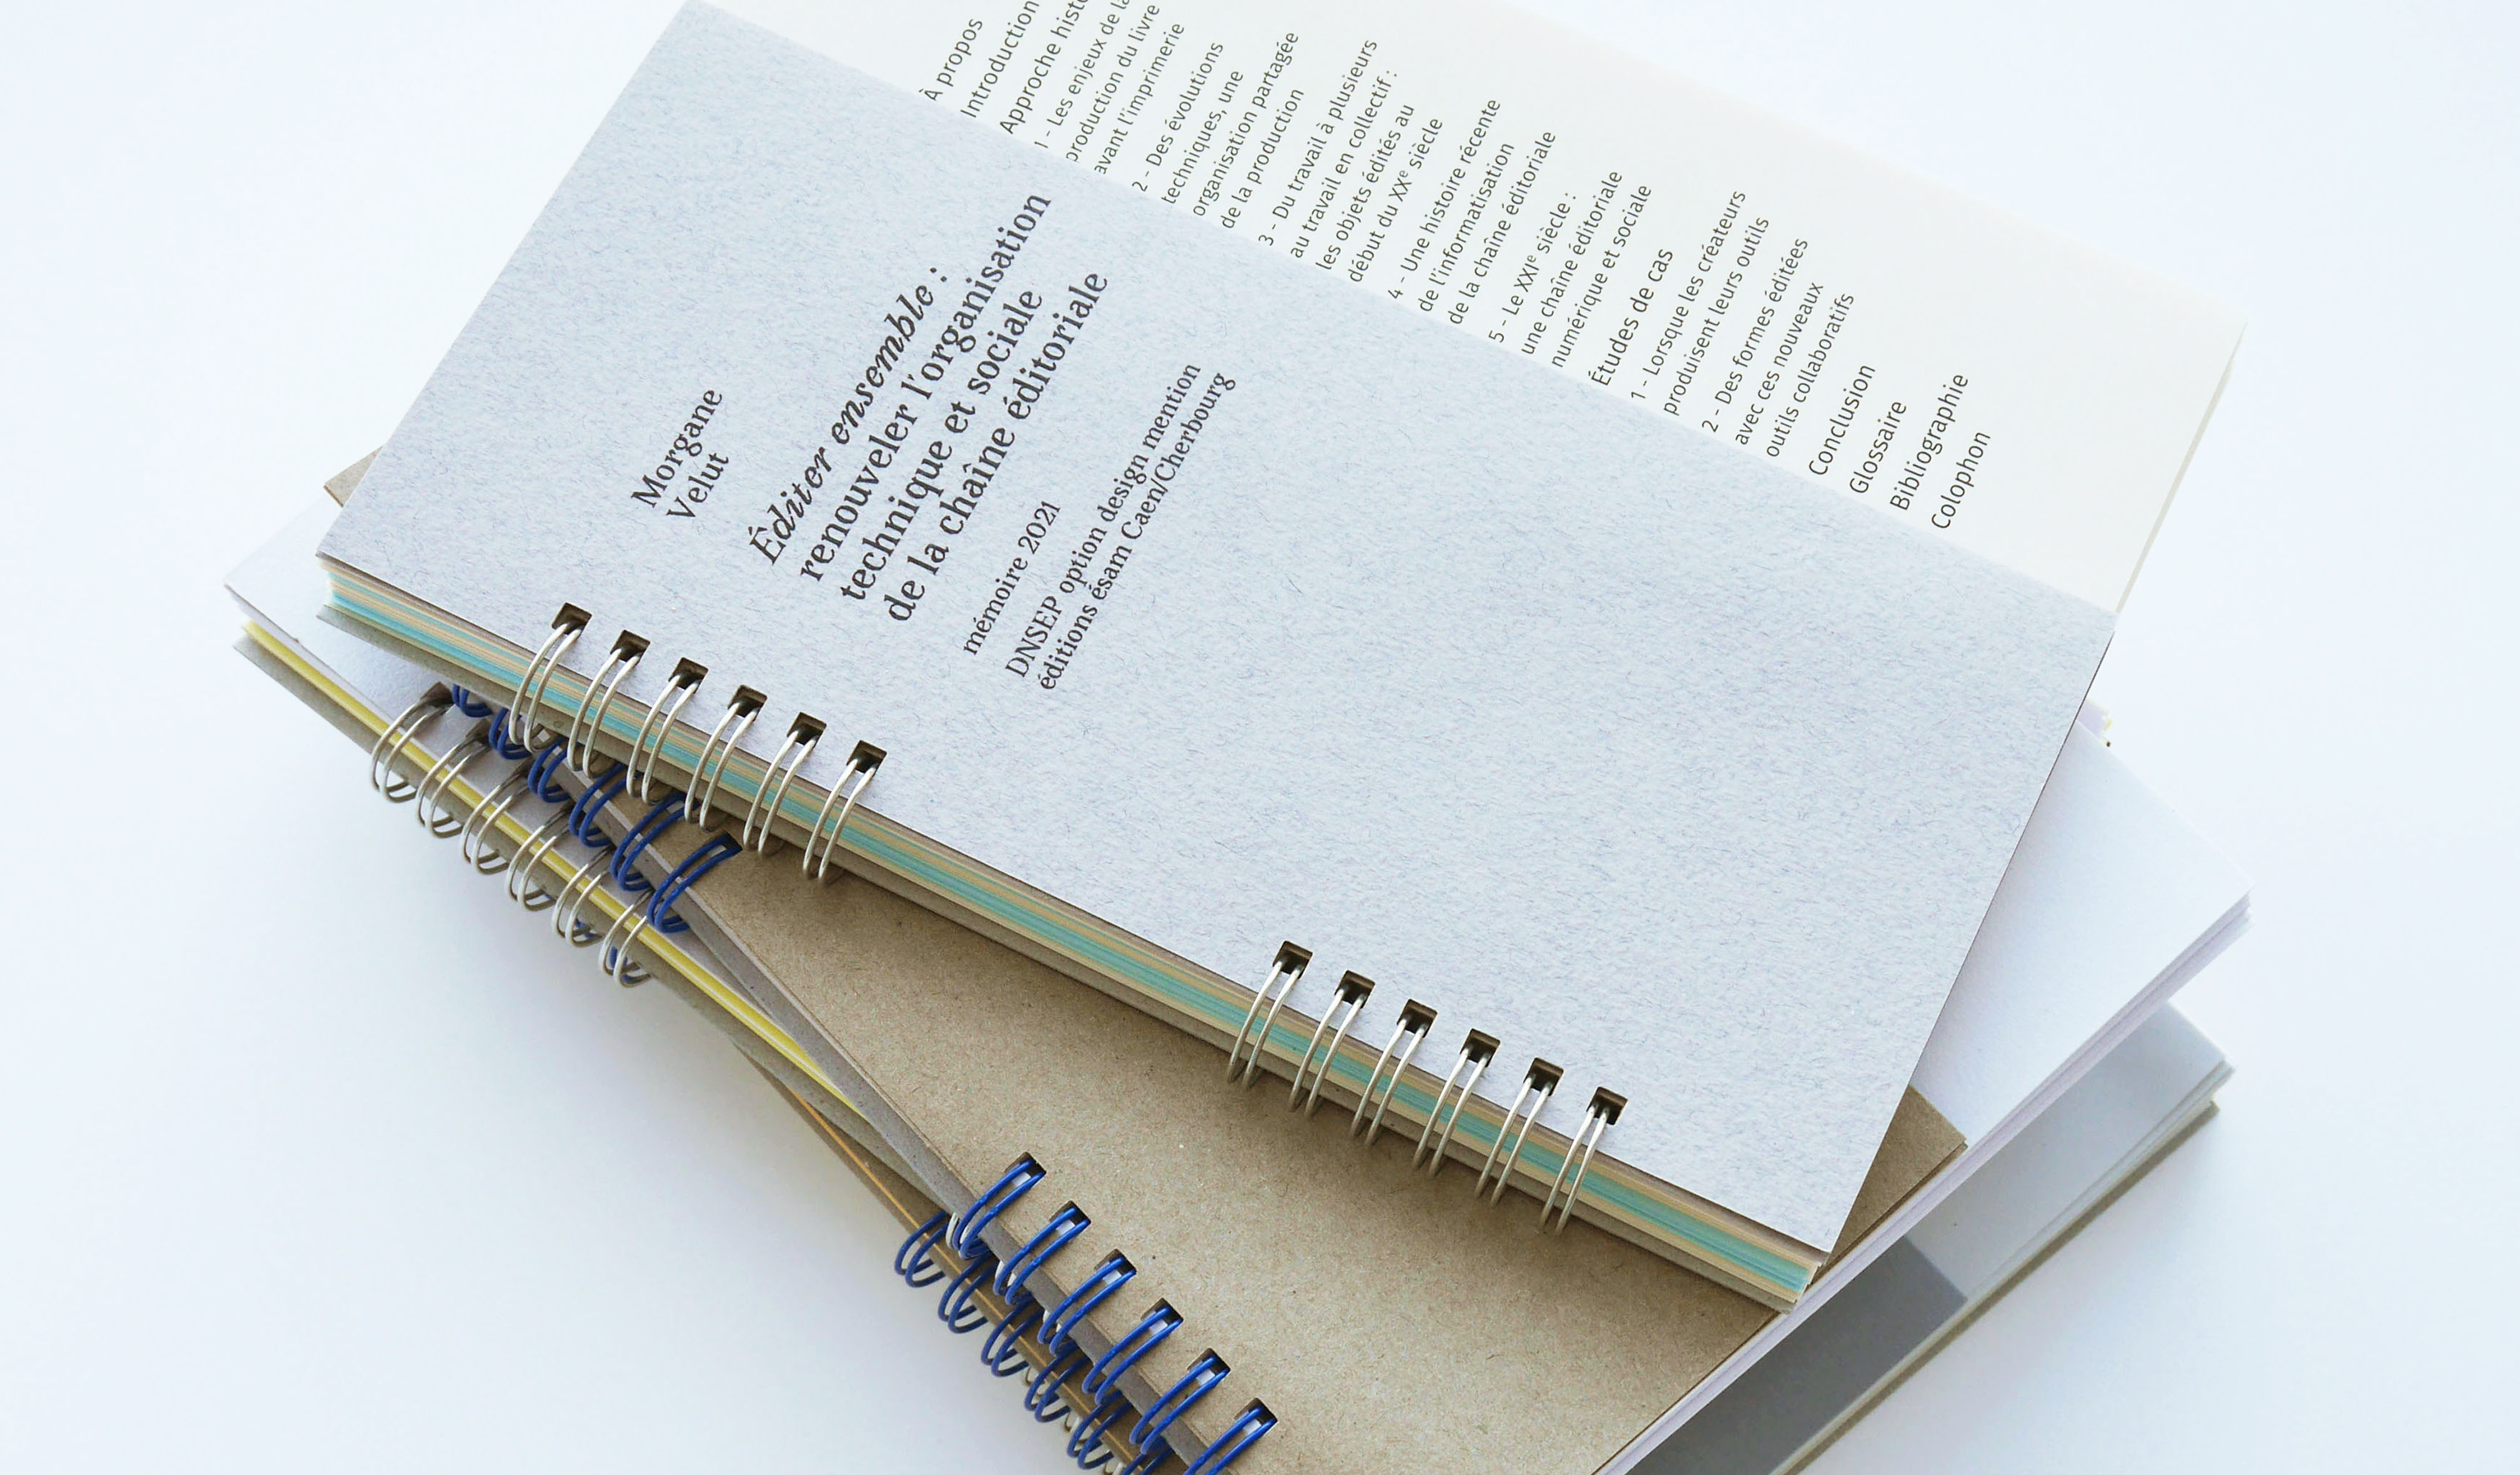 Morgane
Velut
Éditer ensemble :
renouveler l'organisation
technique et sociale
de la chaîne éditoriale
mémoire 2021
DNSEP option design mention
éditions ésam Caen/Cherbourg
À propos
Introduction
Approche
1 - Les enjeux de la
production du livre
avant l'imprimerie
2 - Des évolutions
techniques, une
organisation partagée
de la production
3 - Du travail à plusieurs
au travail en collectif :
les objets édités au
début du XXᵉ siècle
4 - Une histoire récente
de l'informatisation
de la chaîne éditoriale
5 - Le XXIᵉ siècle :
une chaîne éditoriale
numérique et sociale
Études de cas
1 - Lorsque les créateurs
produisent leurs outils
2 - Des formes éditées
avec ces nouveaux
outils collaboratifs
Conclusion
Glossaire
Bibliographie
Colophon